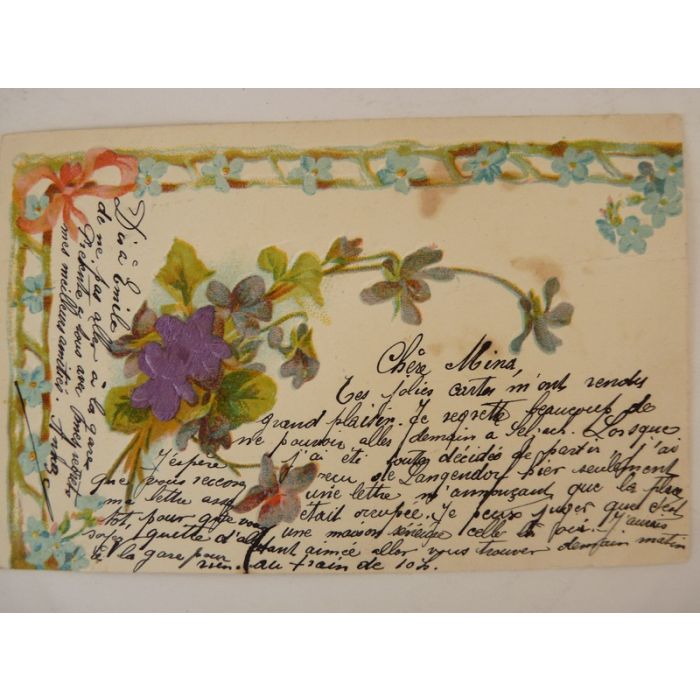 Chère Mina,
Tes jolies cartes m'ont rendu
grand plaisir. Je regrette beaucoup de
ne pouvoir aller demain à Selzach. Lorsque
j'ai été toute décidée de partir, j'ai
reçu de Langendorf hier seulement
une lettre m'annonçant que la place
était occupée. Je peux juger que c'est
une maison sérieuse celle là foi. J'aurais
tant aimée aller vous trouver demain matin
au train de 10h.
J'espère
que vous recevrez
ma lettre assez
tôt, pour que vous
soyez quitte d'aller
à la gare pour
rien.
Dis à Emile
de ne pas aller à la gare
Présente à tous avec
mes meilleures amitiés. Anna